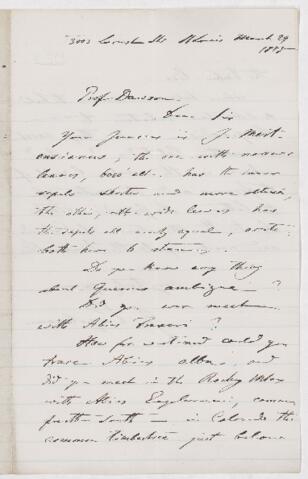 3003 Locust St St Louis March 29
1883
Prof. Dawson
Dear Sir
Your Juncus is J. Mert-
ensianus, the one with narrow
leaves, has the inner
sepals shorter and more obtuse,
the other, with wide leaves has
the sepals all nearly equal,
both have 6 stamens.
Do you know any thing
about Quercus ambigua?
Did you ever meet
with Abies Fraseri?
How far westward could you
trace Abies alba, and
did you meet in the Rocky Mtns
with Abies Engelmanni, common
further South — in Colorado the
common timber tree just below